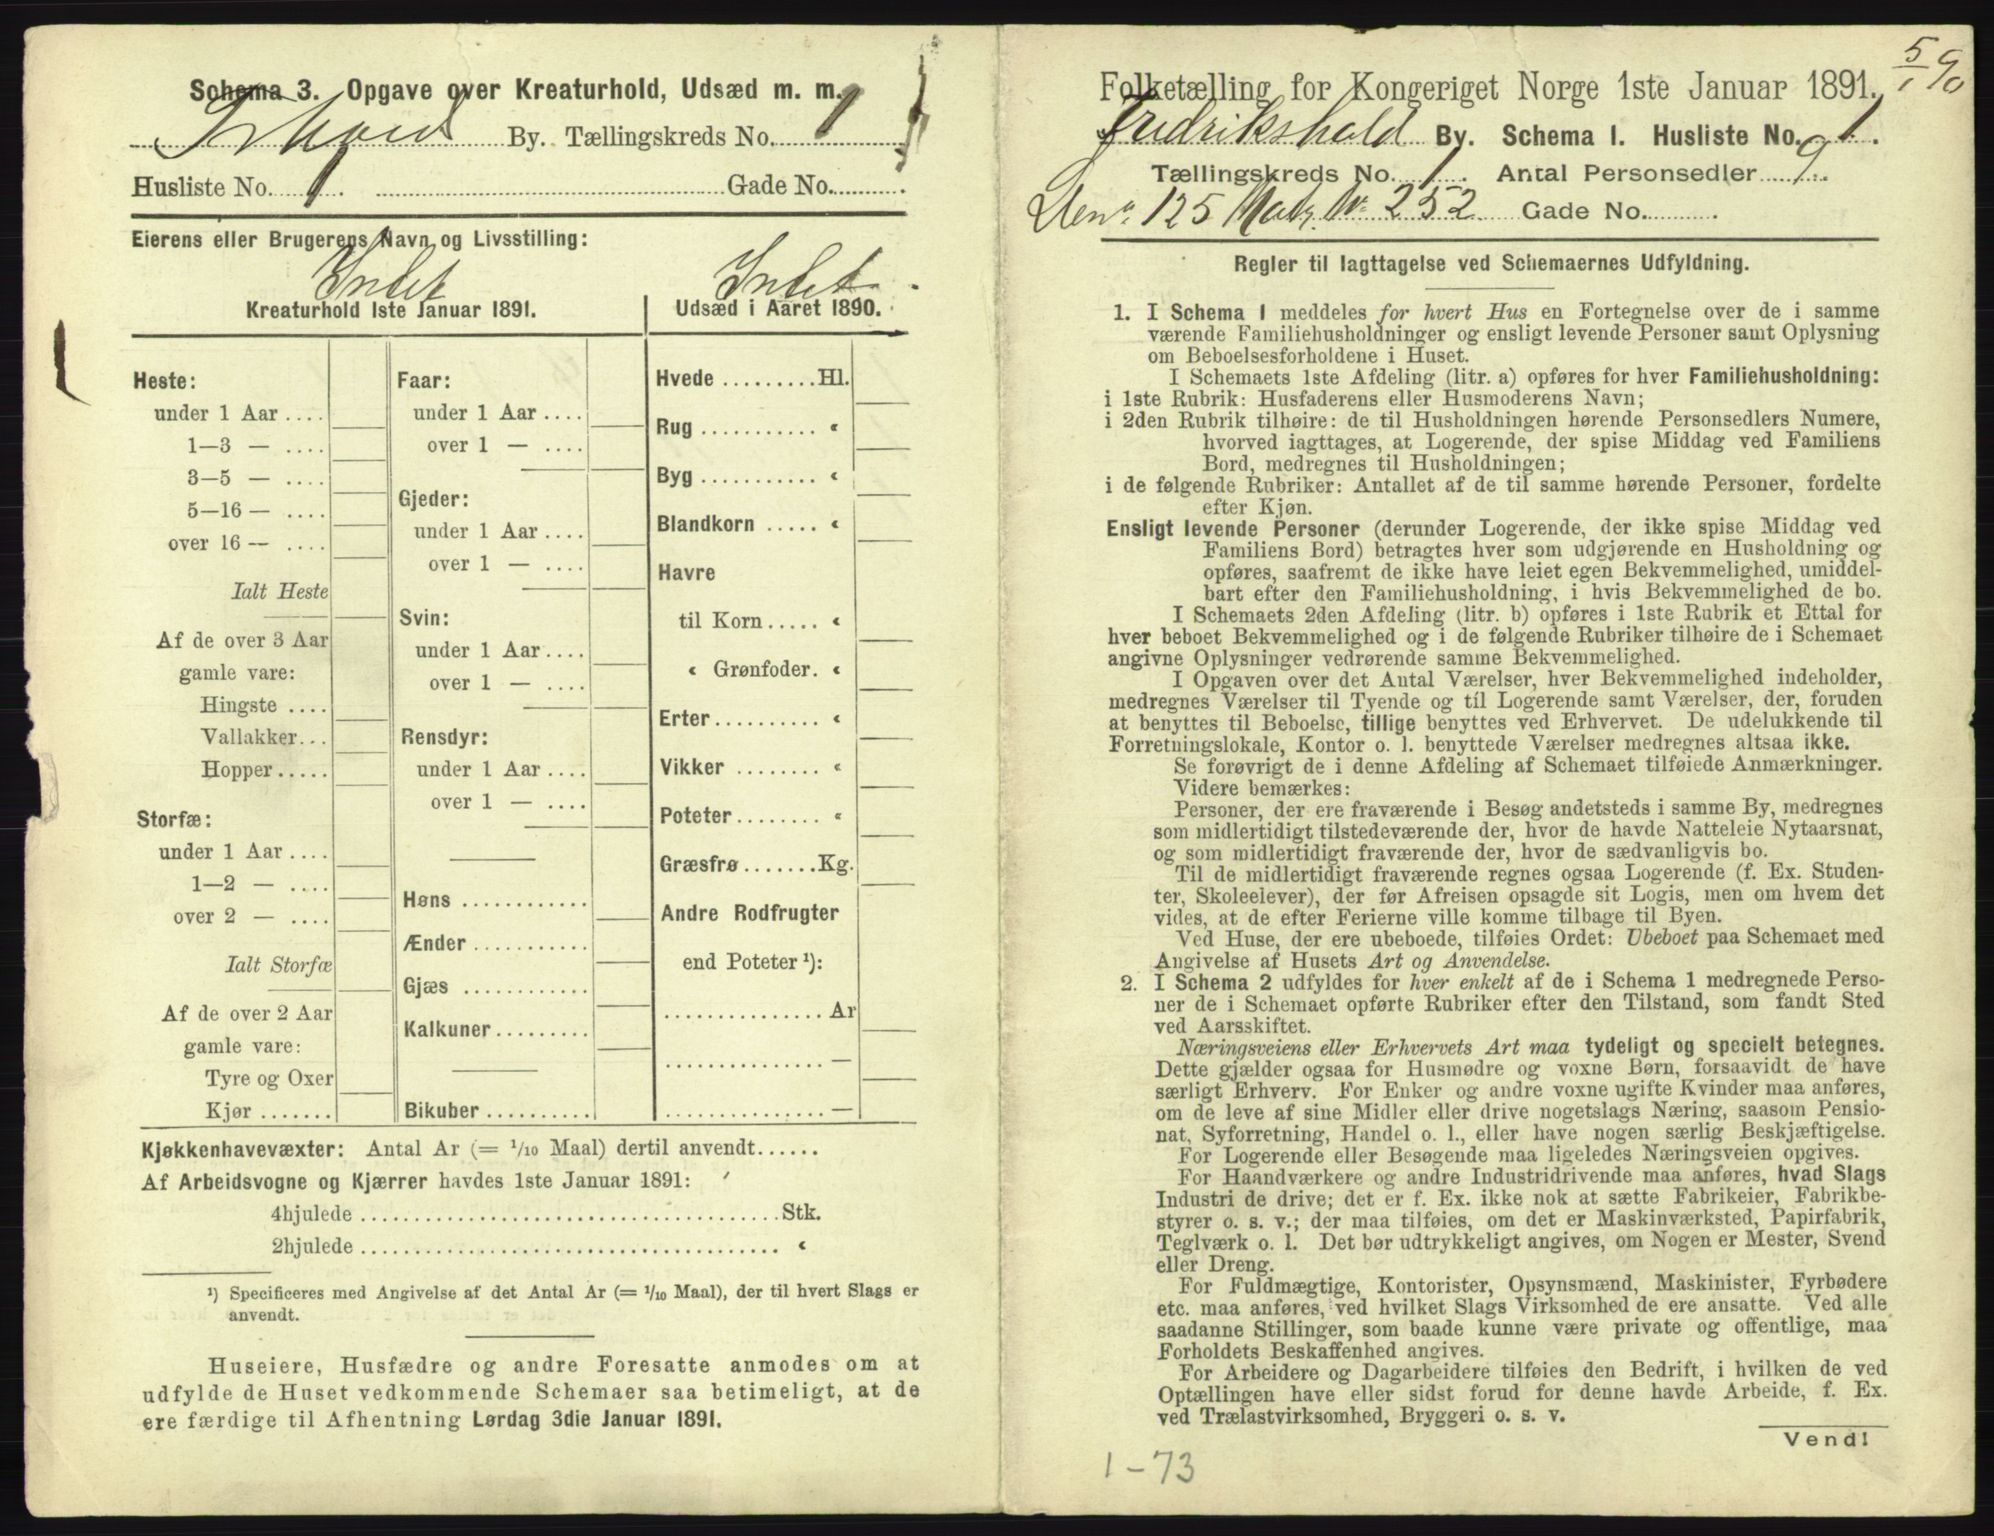 Schema 3. Opgave over Kreaturhold, Udsæd m. m.
Frhald By. Tællingskreds No. 1
Husliste No. 1. Gade No.
Eierens eller Brugerens Navn og Livsstilling:
Intet Intet
Kreaturhold 1ste Januar 1891.
Udsæd i Aaret 1890.
Heste:
under 1 Aar ....
1—3 — ....
3—5 — ....
5—16 — ....
over 16 — ....
Ialt Heste
Af de over 3 Aar
gamle vare:
Hingste ....
Vallakker...
Hopper.....
Storfæ:
under 1 Aar....
1—2 — ....
over 2 — ....
Ialt Storfæ
Af de over 2 Aar
gamle vare:
Tyre og Oxer
Kjør .......
Faar:
under 1 Aar....
over 1 — ....
Gjeder:
under 1 Aar....
over 1 — ....
Svin:
under 1 Aar....
over 1 — ....
Rensdyr:
under 1 Aar....
over 1 — ....
Høns ............
Ænder ...........
Gjæs ............
Kalkuner.........
Bikuber ..........
Hvede .........Hl.
Rug ........... «
Byg ........... «
Blandkorn ..... «
Havre
til Korn..... «
« Grønfoder. «
Erter.......... «
Vikker ........ «
Poteter........ «
Græsfrø .......Kg.
Andre Rodfrugter
end Poteter ¹):
............... Ar
............... —
............... —
Kjøkkenhavevæxter: Antal Ar (= 1/10 Maal) dertil anvendt......
Af Arbeidsvogne og Kjærrer havdes 1ste Januar 1891:
4hjulede ........................................Stk.
2hjulede ........................................ «
¹) Specificeres med Angivelse af det Antal Ar (= 1/10 Maal), der til hvert Slags er
anvendt.
Huseiere, Husfædre og andre Foresatte anmodes om at
udfylde de Huset vedkommende Schemaer saa betimeligt, at de
ere færdige til Afhentning Lørdag 3die Januar 1891.
5/1 90
Folketælling for Kongeriget Norge 1ste Januar 1891.
Fredrikshald By. Schema I. Husliste No. 1.
Tællingskreds No. 1. Antal Personsedler 9.
125 Matr. No 252 Gade No.
Regler til Iagttagelse ved Schemaernes Udfyldning.
1. I Schema I meddeles for hvert Hus en Fortegnelse over de i samme
værende Familiehusholdninger og ensligt levende Personer samt Oplysning
om Beboelsesforholdene i Huset.
I Schemaets 1ste Afdeling (litr. a) opføres for hver Familiehusholdning:
i 1ste Rubrik: Husfaderens eller Husmoderens Navn;
i 2den Rubrik tilhøire: de til Husholdningen hørende Personsedlers Numere,
hvorved iagttages, at Logerende, der spise Middag ved Familiens
Bord, medregnes til Husholdningen;
i de følgende Rubriker: Antallet af de til samme hørende Personer, fordelte
efter Kjøn.
Ensligt levende Personer (derunder Logerende, der ikke spise Middag ved
Familiens Bord) betragtes hver som udgjørende en Husholdning og
opføres, saafremt de ikke have leiet egen Bekvemmelighed, umiddel-
bart efter den Familiehusholdning, i hvis Bekvemmelighed de bo.
I Schemaets 2den Afdeling (litr. b) opføres i 1ste Rubrik et Ettal for
hver beboet Bekvemmelighed og i de følgende Rubriker tilhøire de i Schemaet
angivne Oplysninger vedrørende samme Bekvemmelighed.
I Opgaven over det Antal Værelser, hver Bekvemmelighed indeholder,
medregnes Værelser til Tyende og til Logerende samt Værelser, der, foruden
at benyttes til Beboelse, tillige benyttes ved Erhvervet. De udelukkende til
Forretningslokale, Kontor o. l. benyttede Værelser medregnes altsaa ikke.
Se forøvrigt de i denne Afdeling af Schemaet tilføiede Anmærkninger.
Videre bemærkes:
Personer, der ere fraværende i Besøg andetsteds i samme By, medregnes
som midlertidigt tilstedeværende der, hvor de havde Natteleie Nytaarsnat,
og som midlertidigt fraværende der, hvor de sædvanligvis bo.
Til de midlertidigt fraværende regnes ogsaa Logerende (f. Ex. Studen-
ter, Skoleelever), der før Afreisen opsagde sit Logis, men om hvem det
vides, at de efter Ferierne ville komme tilbage til Byen.
Ved Huse, der ere ubeboede, tilføies Ordet: Ubeboet paa Schemaet med
Angivelse af Husets Art og Anvendelse.
2. I Schema 2 udfyldes for hver enkelt af de i Schema 1 medregnede Perso-
ner de i Schemaet opførte Rubriker efter den Tilstand, som fandt Sted
ved Aarsskiftet.
Næringsveiens eller Erhvervets Art maa tydeligt og specielt betegnes.
Dette gjælder ogsaa for Husmødre og voxne Børn, forsaavidt de have
særligt Erhverv. For Enker og andre voxne ugifte Kvinder maa anføres,
om de leve af sine Midler eller drive nogetslags Næring, saasom Pensio-
nat, Syforretning, Handel o. l., eller have nogen særlig Beskjæftigelse.
For Logerende eller Besøgende maa ligeledes Næringsveien opgives.
For Haandværkere og andre Industridrivende maa anføres, hvad Slags
Industri de drive; det er f. Ex. ikke nok at sætte Fabrikeier, Fabrikbe-
styrer o. s. v.; der maa tilføies, om det er Maskinværksted, Papirfabrik,
Teglværk o. l. Det bør udtrykkeligt angives, om Nogen er Mester, Svend
eller Dreng.
For Fuldmægtige, Kontorister, Opsynsmænd, Maskinister, Fyrbødere
etc. maa anføres, ved hvilket Slags Virksomhed de ere ansatte. Ved alle
saadanne Stillinger, som baade kunne være private og offentlige, maa
Forholdets Beskaffenhed angives.
For Arbeidere og Dagarbeidere tilføies den Bedrift, i hvilken de ved
Optællingen have eller sidst forud for denne havde Arbeide, f. Ex.
ved Trælastvirksomhed, Bryggeri o. s. v.
Vend!
1-73